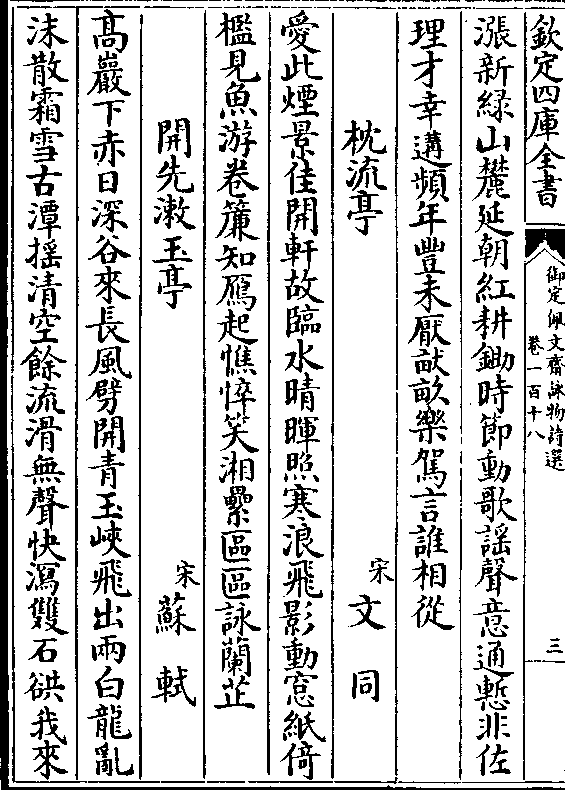 欽定四庫全書
御定佩文齋詠物詩選
卷一百十八
三
漲新緑山麓延朝紅耕鋤時節動歌謡聲意通慙非佐
理才幸遘頻年豐未厭畎畝樂駕言誰相從
枕流亭
宋
文同
愛此煙景佳開軒故臨水晴暉照寒浪飛影動窓紙倚
檻見魚游卷簾知鴈起憔悴笑湘纍區區詠蘭芷
開先漱玉亭
宋
蘇軾
髙巖下赤日深谷來長風劈開青玉峽飛出兩白龍亂
沫散霜雪古潭揺清空餘流滑無聲快瀉雙石谼我來